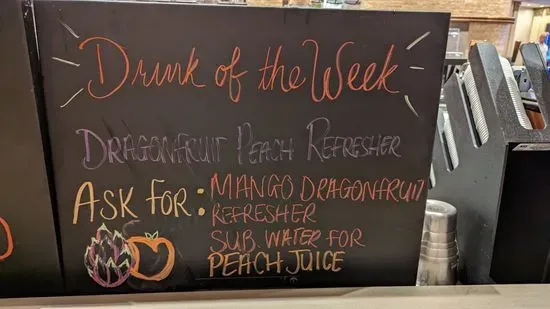 Drink of the Week
DRAGONFRUIT PEACH REFRESHER
ASK FOR: MANGO DRAGONFRUIT
REFRESHER
SUB. WATER FOR
PEACH JUICE